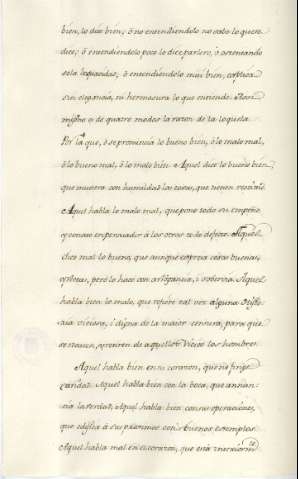 bien, lo dice bien; ó no entendiendolo no sabe lo que se
dice; ó entendiendolo poco lo dice parlero, ó ostentando
; ó entendiendolo mui bien, explica
sin elegancia, ni hermosura lo que entiende.
mismo es de quatro modos la razon de la loquela
Por la que, ó se pronuncia lo bueno bien, ó lo malo mal,
ó lo bueno mal, ó lo malo bien. Aquel dice lo bueno bien
que muestra con humildad las cosas, que tienen
Aquel habla lo malo mal, que pone todo su empeño
en persuadir á los otros Aquel
dice mal lo bueno, que aunque expresa cosas buenas,
y rectas, pero lo hace con arrogancia, i sobervia. Aquel
habla bien lo malo, que refiere tal vez alguna
viciosa, i digna de la maior censura, para que
se aparten de aquellos Vicios los hombres.
Aquel habla bien en su corazon, que no finge
. Aquel habla bien con la boca, que anun-
cia la verdad. Aquel habla bien con sus operaciones,
que edifica á sus proximos con buenos exemplos
Aquel habla mal en el corazon, que está